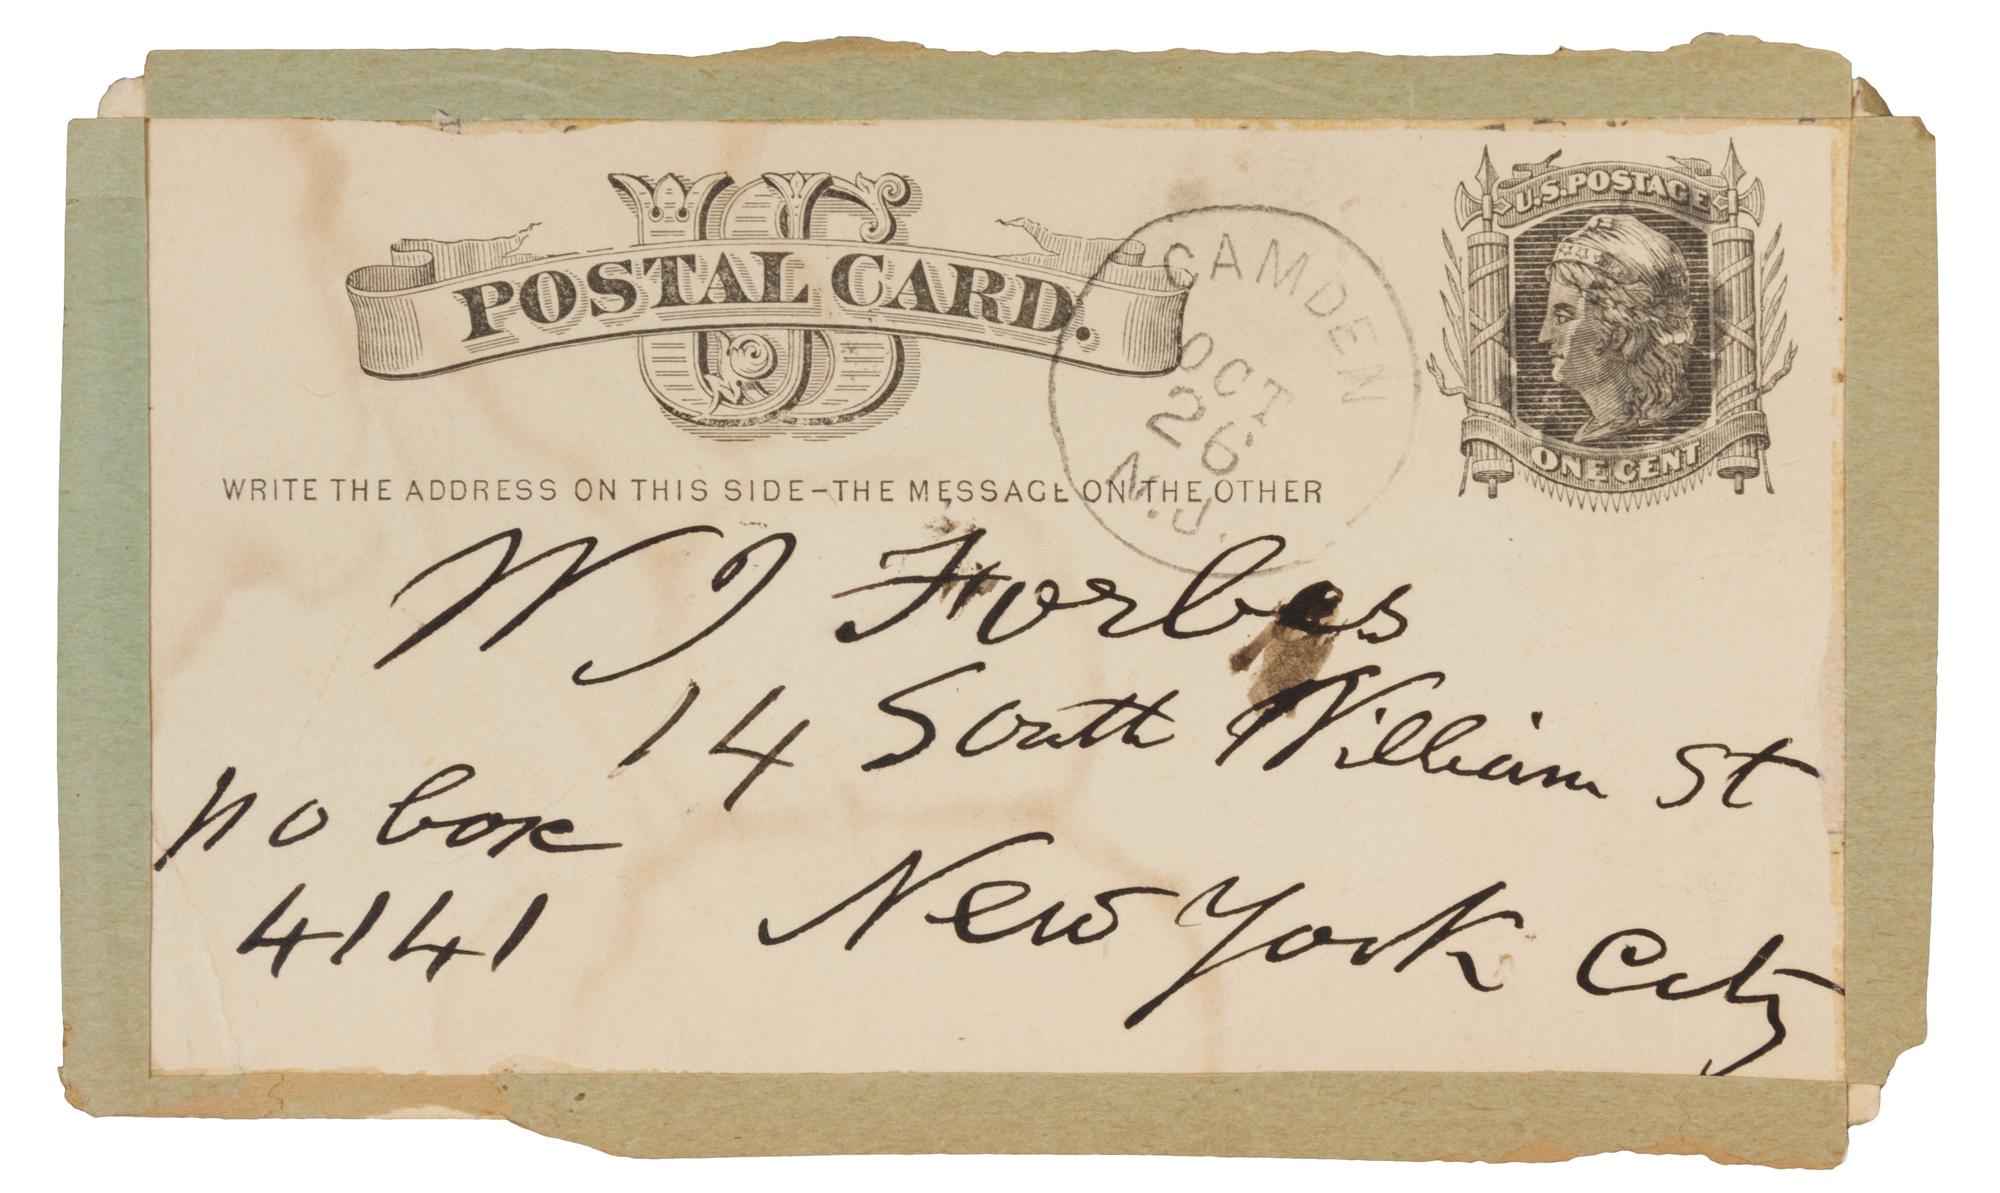 US
POSTAL CARD.
U.S. POSTAGE
ONE CENT
CAMDEN
OCT
26
N.J.
WRITE THE ADDRESS ON THIS SIDE-THE MESSAGE ON THE OTHER
W J Forbes
14 South William St
no box
4141
New York City